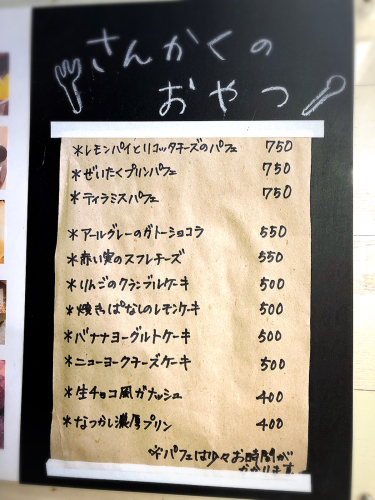 さんかくの
おやつ
*レモンパイとリコッタチーズのパフェ 750
*ぜいたくプリンパフェ 750
*ティラミスパフェ 750
*アールグレーのガトーショコラ 550
*赤い実のスフレチーズ 550
*りんごのクランブルケーキ 500
*焼きっぱなしのレモンケーキ 500
*バナナヨーグルトケーキ 500
*ニューヨークチーズケーキ 500
*生チョコ風ガナッシュ 400
*なつかし濃厚プリン 400
※パフェは少々お時間が
かかります